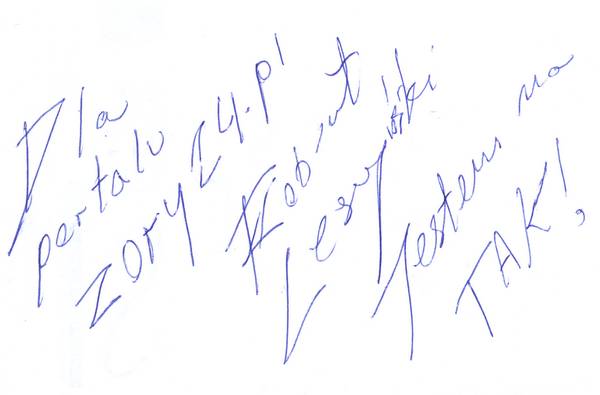 Dla
portalu
ZORY24.pl
Robert
Leszczyński
Jestem na
TAK!